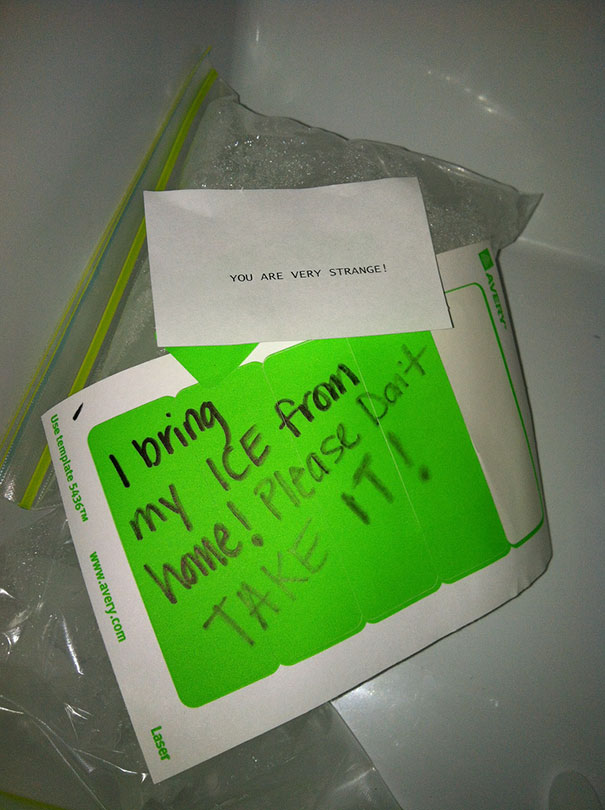 YOU ARE VERY STRANGE!
AVERY
I bring
my ICE from
home! Please Don't
TAKE IT!
Use template 5436™
www.avery.com
Laser